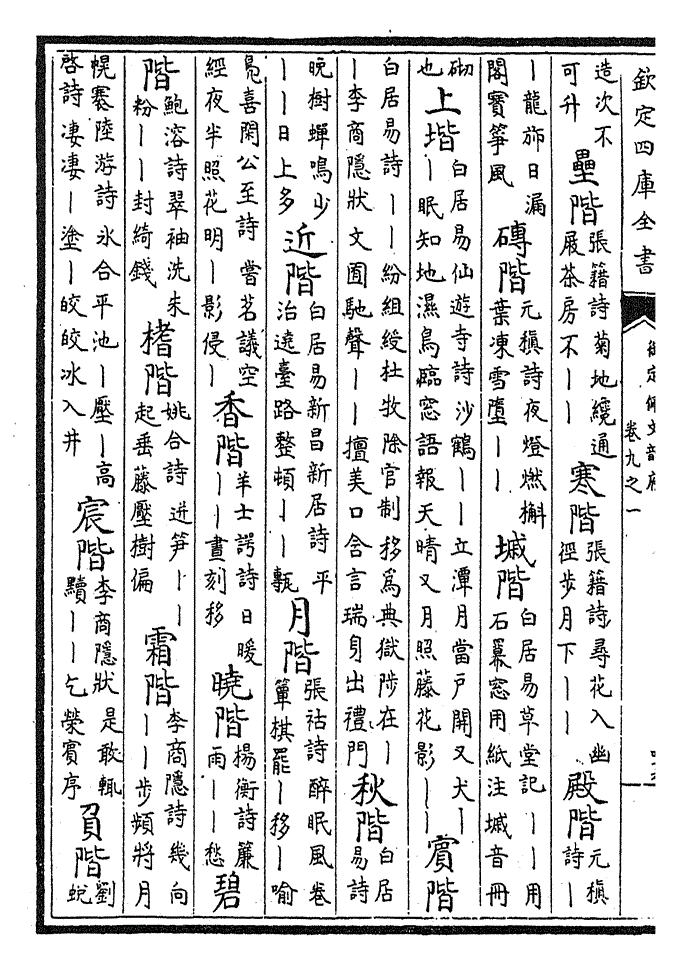 欽定四庫全書
御定佩文韻府
卷九之一
造次不可升 壘階 張籍詩菊地繞通屐茶房不丨丨 寒階 張籍詩尋花入幽徑步月下丨丨 殿階 元稹詩丨
丨龍斾日漏閣寶箏風 磚階 元稹詩夜燈燃槲葉凍雪墮丨丨 墄階 白居易草堂記丨丨用石羃窓用紙注墄音冊
砌也 上堦 白居易仙遊寺詩沙鶴丨丨立潭月當戶開又犬丨丨眠知地濕鳥臨窓語報天晴又月照藤花影丨丨 賓階
白居易詩丨丨紛組綬杜牧除官制移為典獄陟在丨丨李商隱狀文圃馳聲丨丨擅美口含言瑞身出禮門 秋階 白居易詩
晚樹蟬鳴少丨丨日上多 近階 白居易新昌新居詩平治遶臺路整頓丨丨甎 月階 張祜詩醉眠風卷簟棋罷丨移丨喻
鳧喜閑公至詩嘗茗議空經夜半照花明丨影侵丨 香階 羊士諤詩日暖丨丨晝刻移 曉階 楊衡詩簾雨丨丨愁 碧
階 鮑溶詩翠袖洗朱粉丨丨封綺錢 榰階 姚合詩迸笋丨丨起垂藤壓樹偏 霜階 李商隱詩幾向丨丨步頻將月
幌褰陸游詩氷合平池丨壓丨高啓詩凄凄丨塗丨皎皎冰入井 宸階 李商隱狀是敢輒黷丨丨乞榮賓序 負階 劉蛻